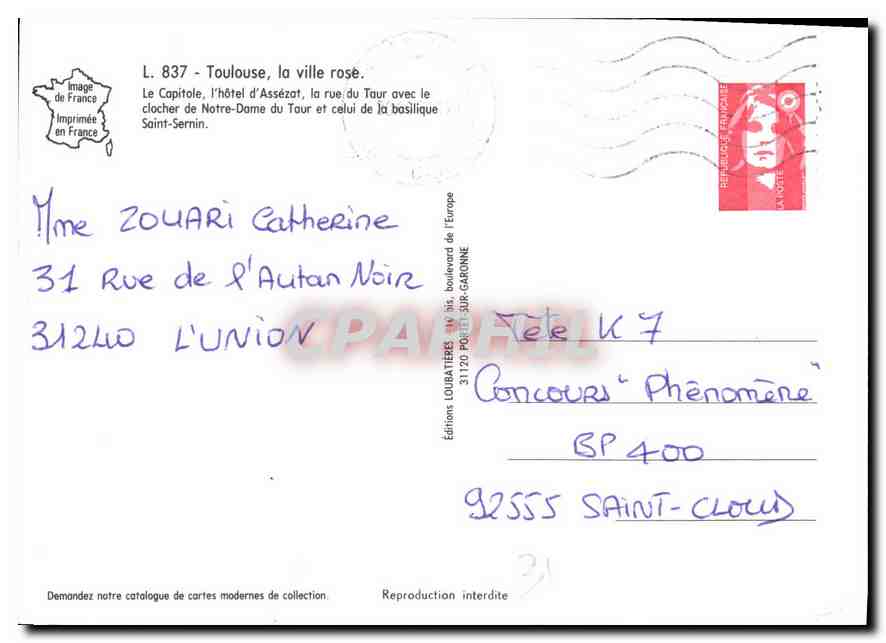 Image
de France
Imprimée
en France
L. 837 - Toulouse, la ville rose.
Le Capitole, l'hôtel d'Assézat, la rue du Taur avec le
clocher de Notre-Dame du Taur et celui de la basilique
Saint-Sernin.
RÉPUBLIQUE FRANÇAISE
LA POSTE
Mme ZOUARI Catherine
31 Rue de l'Autan Noir
31240 L'UNION
Editions LOUBATIÈRES bis, boulevard de l'Europe
31120 PORTET-SUR-GARONNE
CPAPHIL
Tete K7
Concours "Phénomène"
BP 400
92555 SAINT-CLOUD
31
Demandez notre catalogue de cartes modernes de collection.
Reproduction interdite